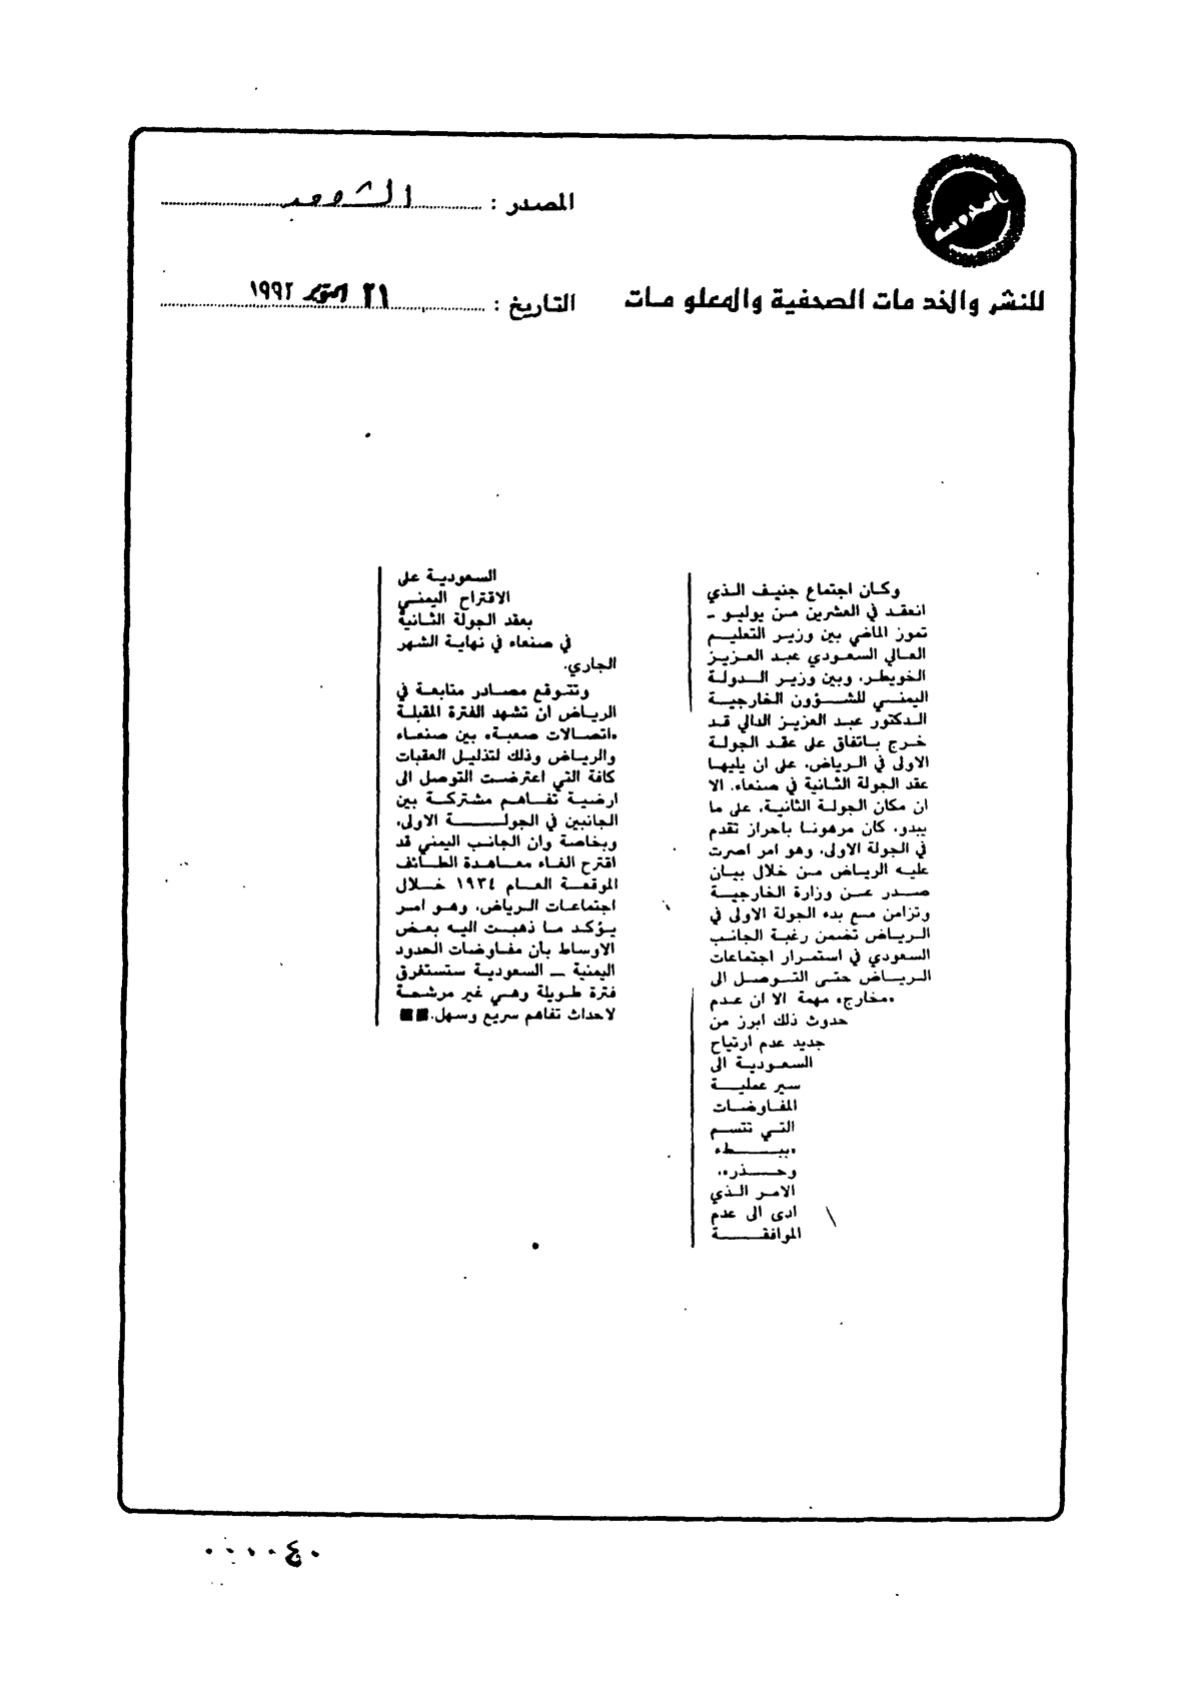 المصدر :
للنشر والخدمات الصحفية والمعلومات
التاريخ : ٢١ اكتوبر ١٩٩٢
وكان اجتماع جنيف الذي
انعقد في العشرين من يوليو -
تموز الماضي بين وزير التعليم
العالي السعودي عبد العزيز
الخويطر، وبين وزير الدولة
اليمني للشؤون الخارجية
الدكتور عبد العزيز الدالي قد
خرج باتفاق على عقد الجولة
الاولى في الرياض، على ان يليها
عقد الجولة الثانية في صنعاء، الا
ان مكان الجولة الثانية، على ما
يبدو، كان مرهونا باحراز تقدم
في الجولة الاولى، وهو امر اصرت
عليه الرياض من خلال بيان
صدر عن وزارة الخارجية
وتزامن مع بدء الجولة الاولى في
الرياض تضمن رغبة الجانب
السعودي في استمرار اجتماعات
الرياض حتى التوصل الى
«مخارج» مهمة الا ان عدم
حدوث ذلك ابرز من
جديد عدم ارتياح
السعودية الى
سير عملية
المفاوضات
التي تتسم
«ببطء
وحذر»،
الامر الذي
ادى الى عدم
الموافقة
السعودية على
الاقتراح اليمني
بعقد الجولة الثانية
في صنعاء في نهاية الشهر
الجاري.
وتتوقع مصادر متابعة في
الرياض ان تشهد الفترة المقبلة
«اتصالات صعبة» بين صنعاء
والرياض وذلك لتذليل العقبات
كافة التي اعترضت التوصل الى
ارضية تفاهم مشتركة بين
الجانبين في الجولة الاولى،
وبخاصة وان الجانب اليمني قد
اقترح الغاء معاهدة الطائف
الموقعة العام ١٩٣٤ خلال
اجتماعات الرياض، وهو امر
يؤكد ما ذهبت اليه بعض
الاوساط بأن مفاوضات الحدود
اليمنية - السعودية ستستغرق
فترة طويلة وهي غير مرشحة
لاحداث تفاهم سريع وسهل.■■
٠٠٠٠٤٠